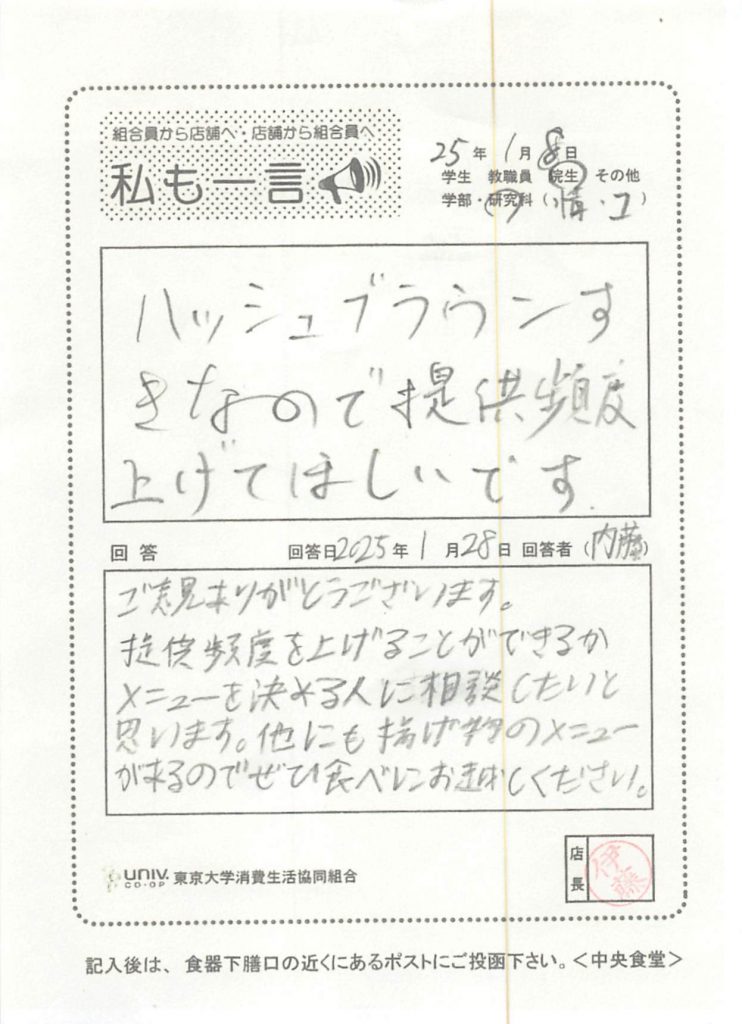 組合員から店舗へ・店舗から組合員へ
私も一言
25年1月8日
学生 教職員 院生 その他
学部・研究科(情・工)
ハッシュブラウンす
きなので提供頻度
上げてほしいです.
回答 回答日2025年1月28日 回答者(内藤)
ご意見ありがとうございます。
提供頻度を上げることができるか
メニューを決める人に相談したいと
思います。他にも揚げ物のメニュー
が来るのでぜひ食べにお越しください。
UNIV. CO-OP 東京大学消費生活協同組合
店長 伊藤
記入後は、食器下膳口の近くにあるポストにご投函下さい。<中央食堂>